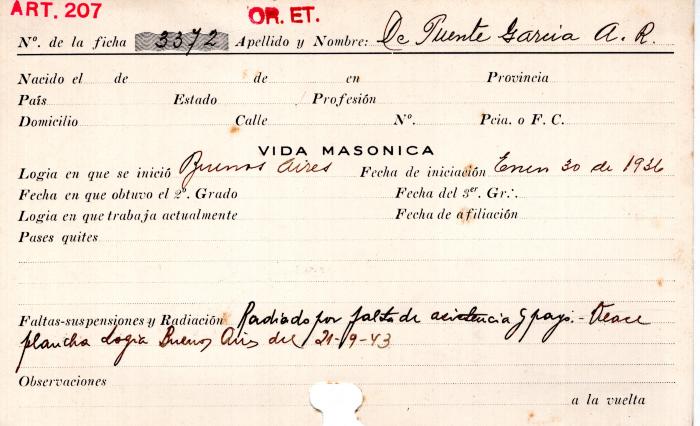 ART. 207 OR. ET.
Nº. de la ficha 3372 Apellido y Nombre: De Puente Garcia A. R.
Nacido el de de en Provincia
País Estado Profesión
Domicilio Calle Nº. Pcia. o F. C.
VIDA MASONICA
Logia en que se inició Buenos Aires Fecha de iniciación Enero 30 de 1936
Fecha en que obtuvo el 2º. Grado Fecha del 3er. Gr∴
Logia en que trabaja actualmente Fecha de afiliación
Pases quites
Faltas-suspensiones y Radiación Radiado por falta de asistencia y pago.- Vease
plancha Logia Buenos Aires del 21-9-43
Observaciones
a la vuelta